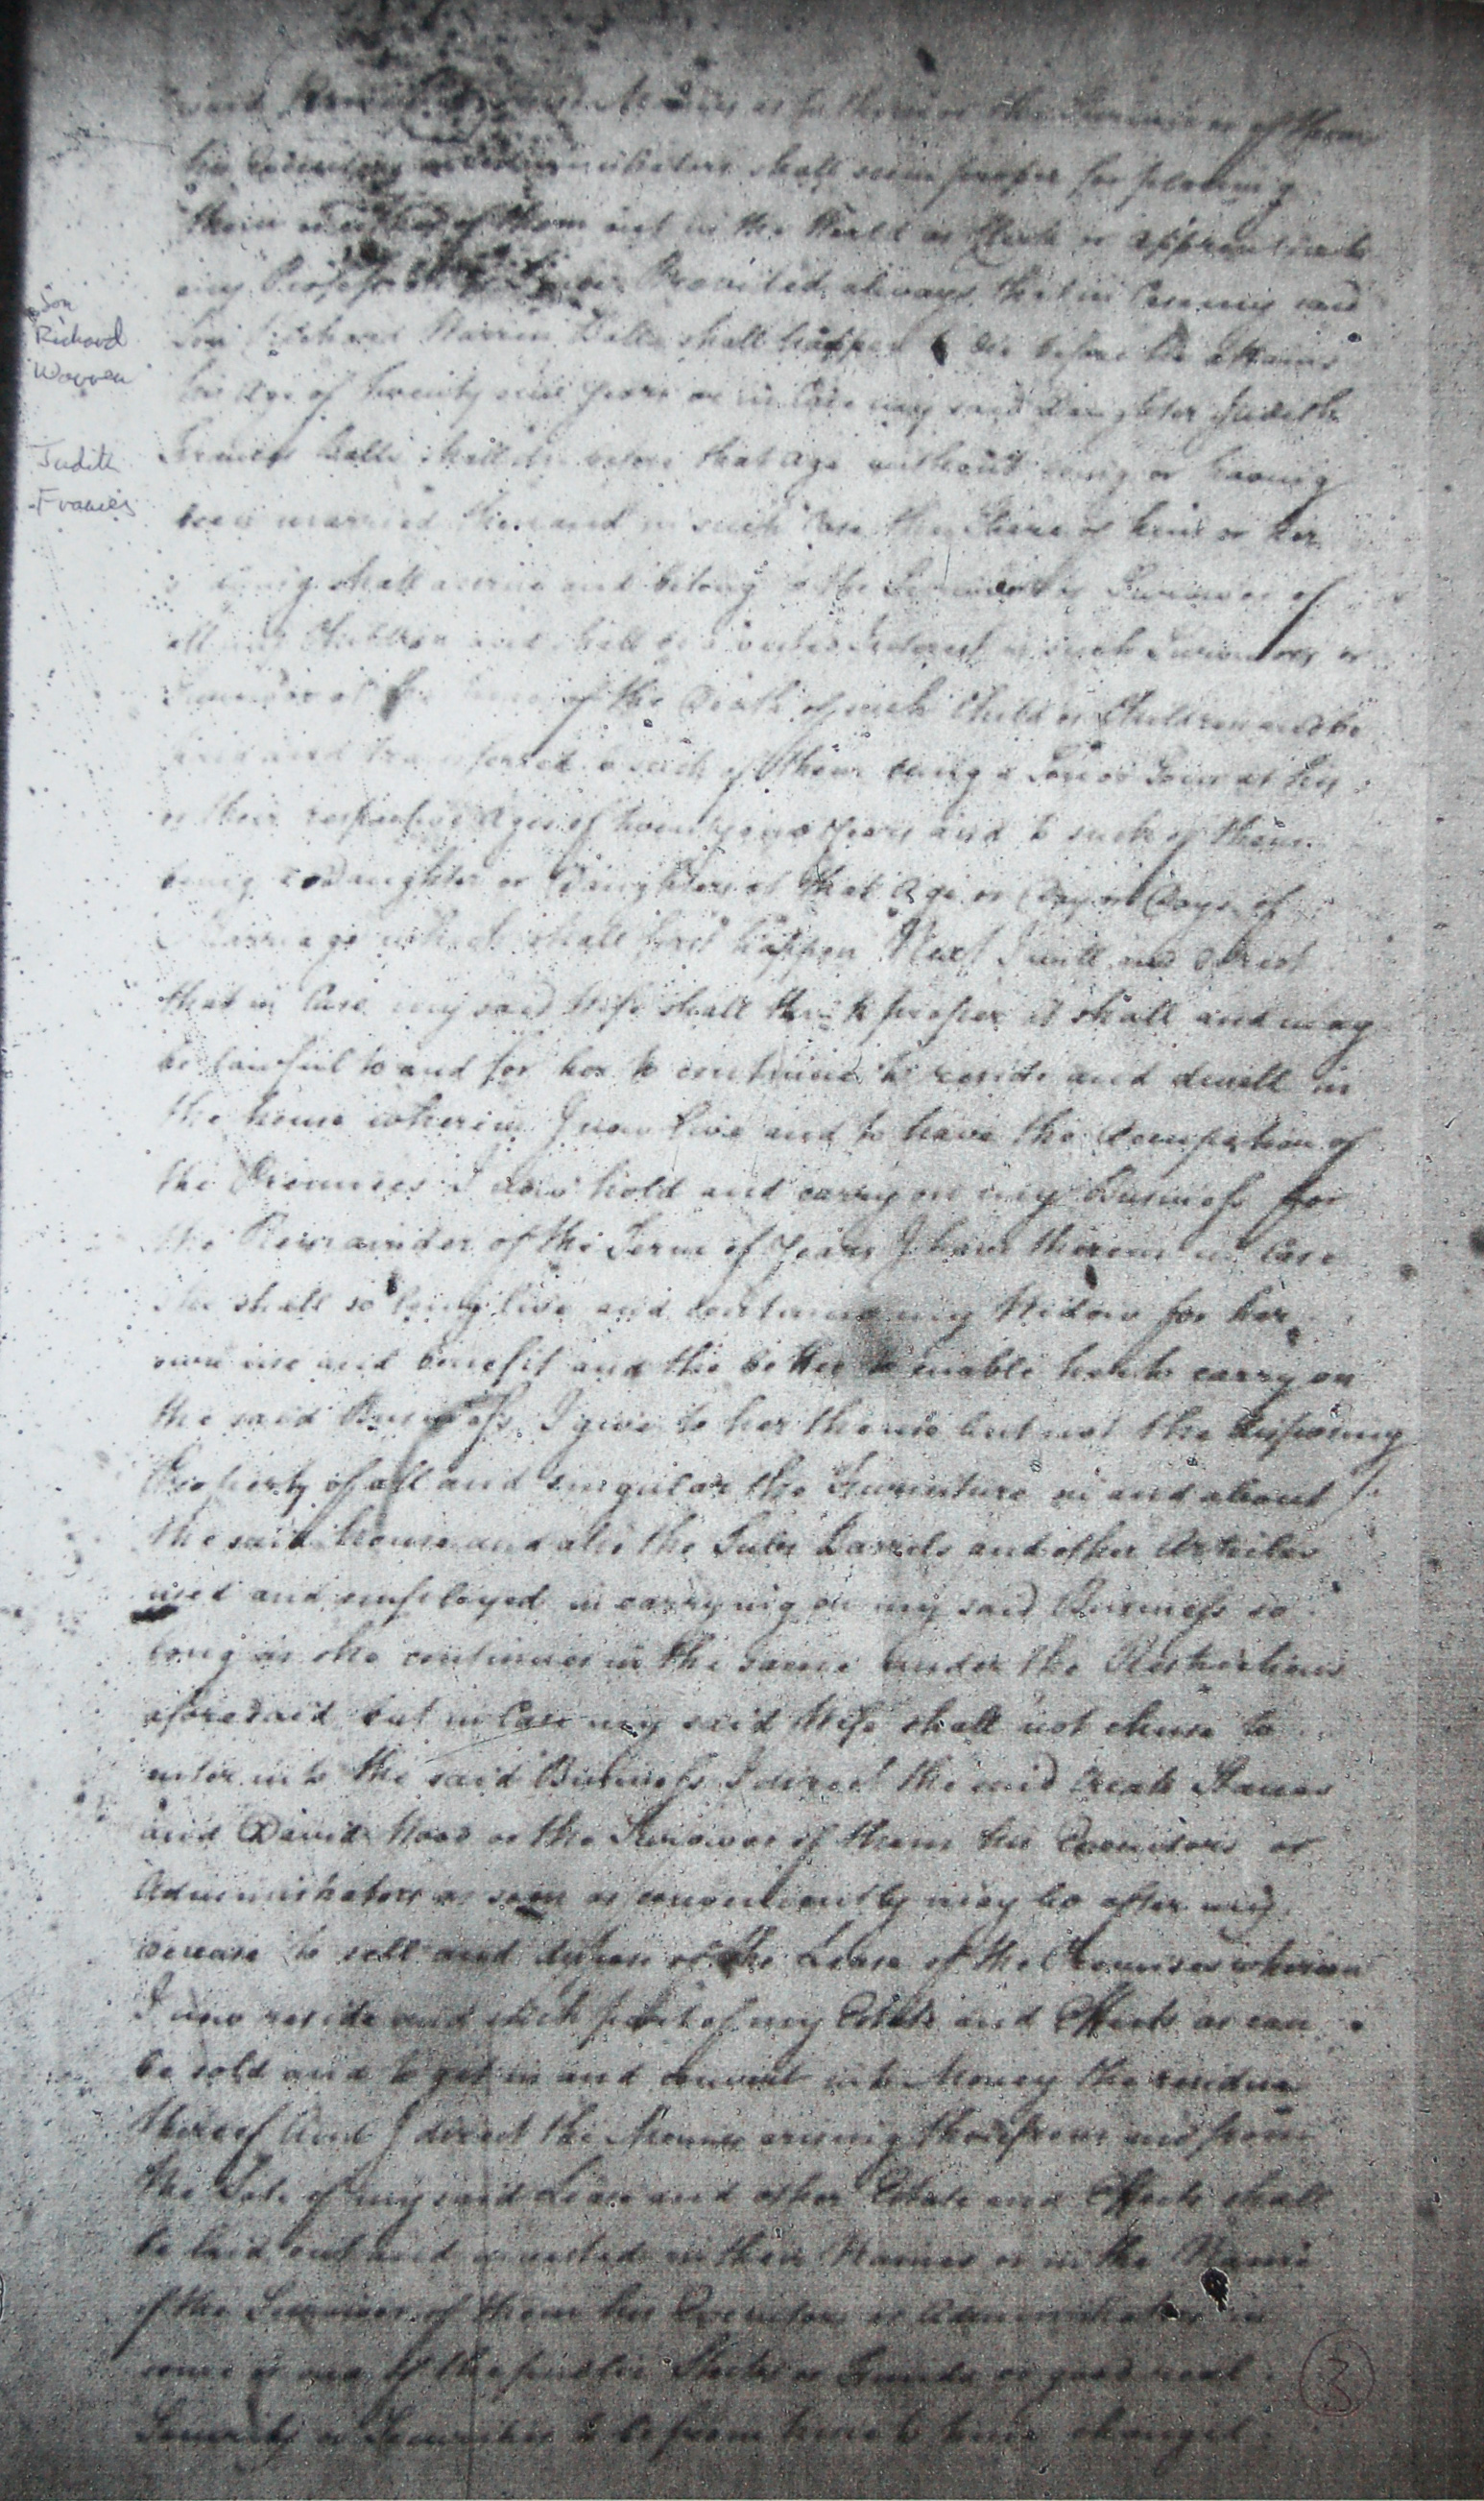 said Monies as to them or the Survivor of them
his Executors or Administrators shall seem proper for placing
them or either of them out in the World as Clerk or apprentice to
any Profession Provided always that in Case my said
Son Richard Warren Balls shall happen to die before he attains
his Age of twenty one Years or in Case my said Daughter Judith
Frances Balls shall die before that Age without being or having
been married then and in such Case the Share of him or her
dying shall accrue and belong to the Survivors or Survivor of
all my Children and shall be a vested Interest in such Survivors or
Survivor at the time of the Death of such Child or Children and be
paid and transferred to such of them being a Son or Sons at his
or their respective Ages of twenty one Years and to such of them
being a Daughter or Daughters at that Age or Day or Days of
Marriage which shall first happen Next I will and direct
that in Case my said Wife shall think proper it shall and may
be lawful to and for her to continue to reside and dwell in
the house wherein I now live and to have the Occupation of
the Premises I now hold and carry on my Business for
the Remainder of the Term of Years I have therein in Case
She shall so long live and continue my Widow for her
own use and benefit and the better to enable her to carry on
the said Business I give to her the use but not the disposing
Property of all and singular the Furniture in and about
the said house and also the Tubs Barrels and other Articles
used and employed in carrying on my said Business so
long as she continues in the same under the Restrictions
aforesaid but in Case my said Wife shall not chuse to
enter into the said Business I direct the said
and David Wood or the Survivor of them his Executors or
Administrators as soon as conveniently may be after my
decease to sell and dispose of the Lease of the Premises wherein
I now reside and such part of my Estate and Effects as can
be sold and to get in and convert into Money the residue
thereof And I direct the Monies arising therefrom and from
the Sale of my said Lease and other Estate and Effects shall
be laid out and invested in their Names or in the Name
of the Survivor of them his Executors or Administrators in
some or one of the public Stocks or Funds or good real
Security or Securities to be from time to time changed
Son
Richard
Warren
Judith
Frances
3